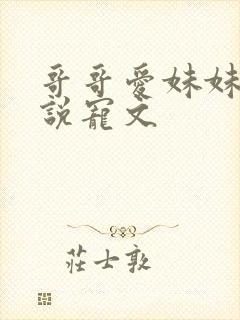 哥哥愛妹妹
說寵文
莊士敦